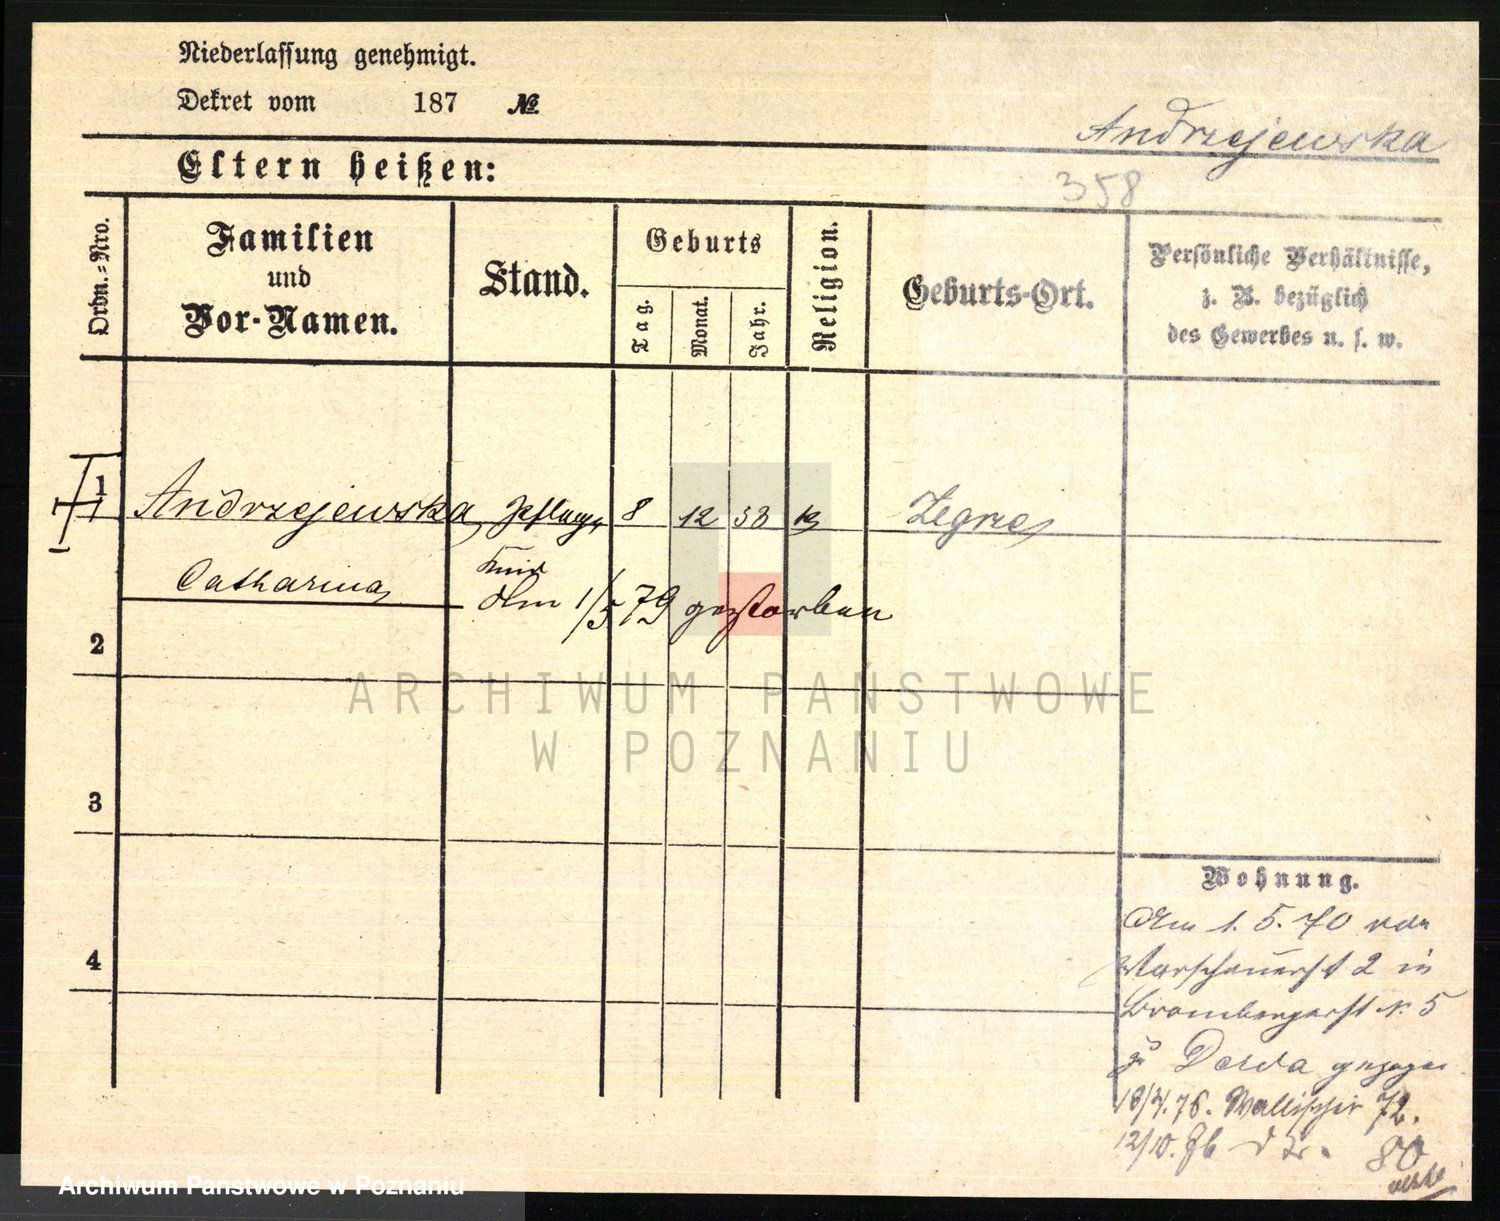 Niederlassung genehmigt.
Dekret vom 187 №
Andrzejewska
Eltern heißen:
358
Ordn.-Nro.
Familien
und
Vor-Namen.
Stand.
Geburts
Tag.
Monat.
Jahr.
Religion.
Geburts-Ort.
Persönliche Verhältnisse,
z. B. bezüglich
des Gewerbes u. s. w.
1 Andrzejewska Pflege 8 12 k Zegrze
Catharina
Am 1/5 79 gestorben
2
ARCHIWUM PAŃSTWOWE
W POZNANIU
3
Wohnung.
Am 1. 5. 70 von
Warschauerst 2 in
4
Brombergerst N. 5
zu gezogen
18/4. 76. Wallischei 72.
12/10. 80
Archiwum Państwowe w Poznaniu